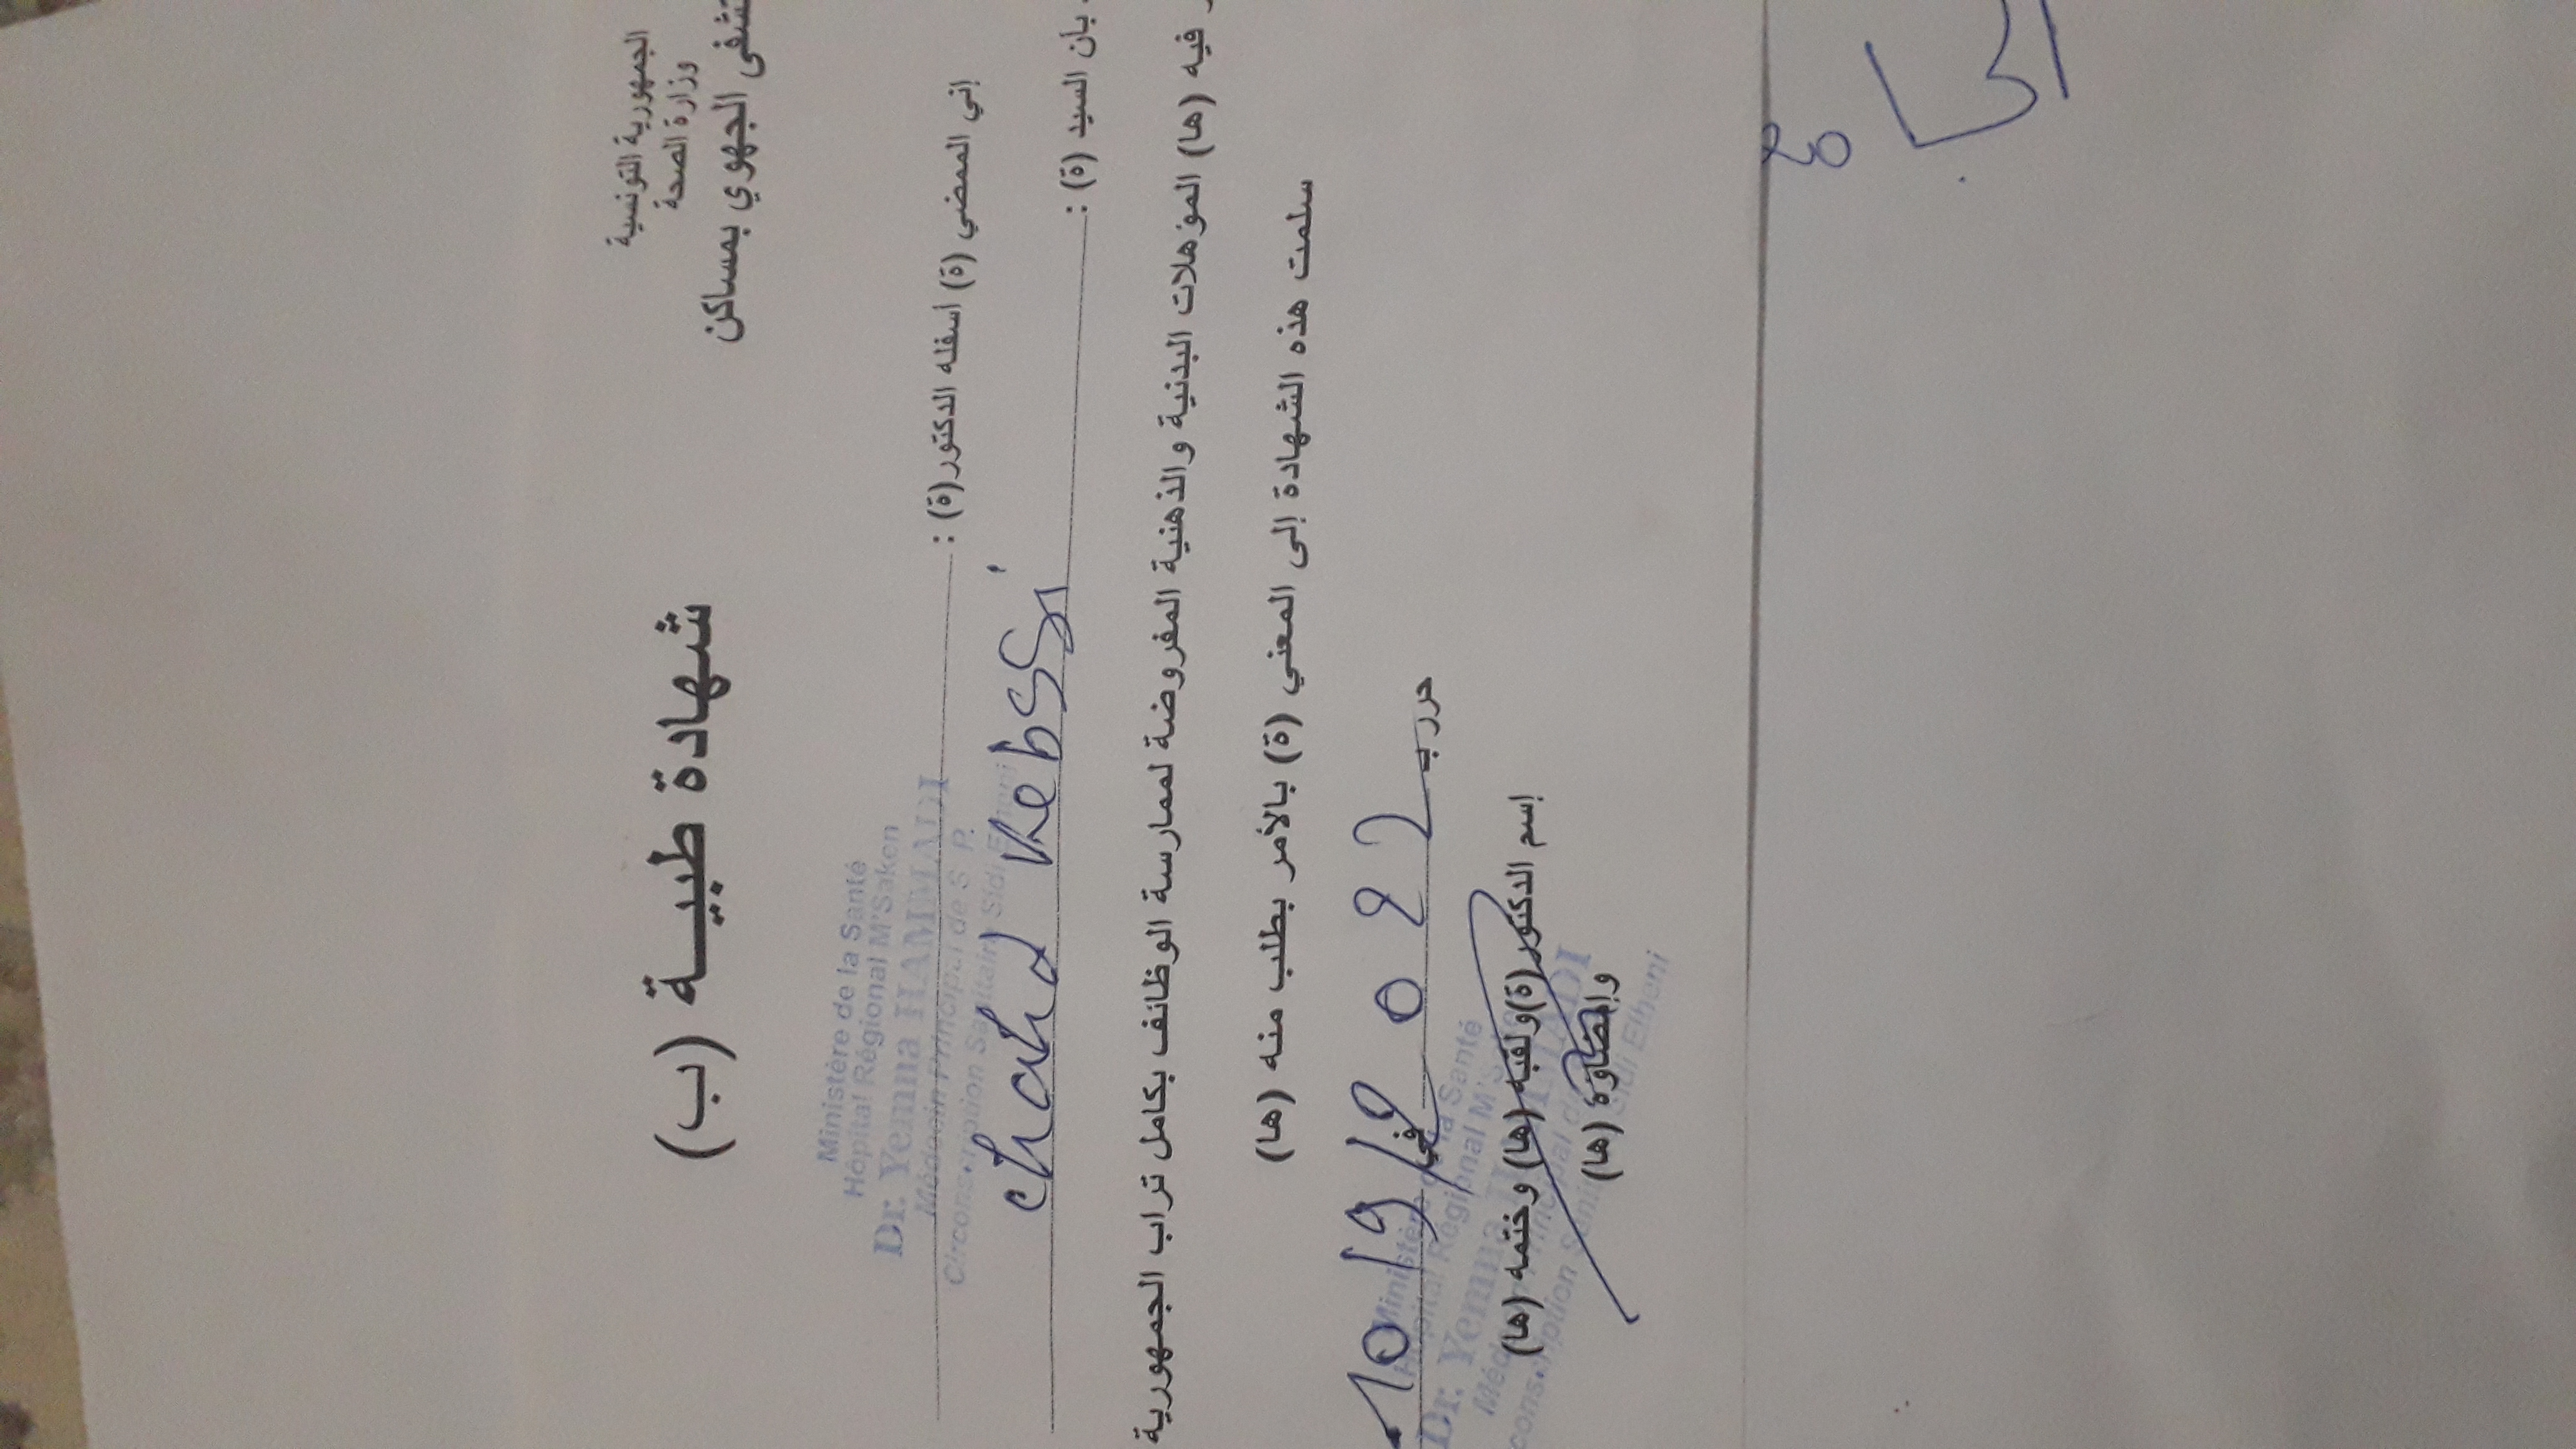 الجمهورية التونسية
وزارة الصحة
الجهوي بمساكن
شهادة طبيـــة (ب)
إني الممضي (ة) أسفله الدكتور(ة) :
Ministère de la Santé
Hôpital Régional M'Saken
Dr. Yemna HAMMADI
Médecin Principal de S P.
Circonscription Sanitaire Sidi Elhani
بأن السيد (ة) :
chahd Kebssi
فيه (ها) المؤهلات البدنية والذهنية المفروضة لممارسة الوظائف بكامل تراب الجمهورية
سلمت هذه الشهادة إلى المعني (ة) بالأمر بطلب منه (ها)
حرر بـ في 10/9/2022
إسم الدكتور (ة) ولقبه (ها) وختمه (ها)
وإمضاؤه (ها)
Ministère de la Santé
Hôpital Régional
Dr. Yemna
Sidi Elhani